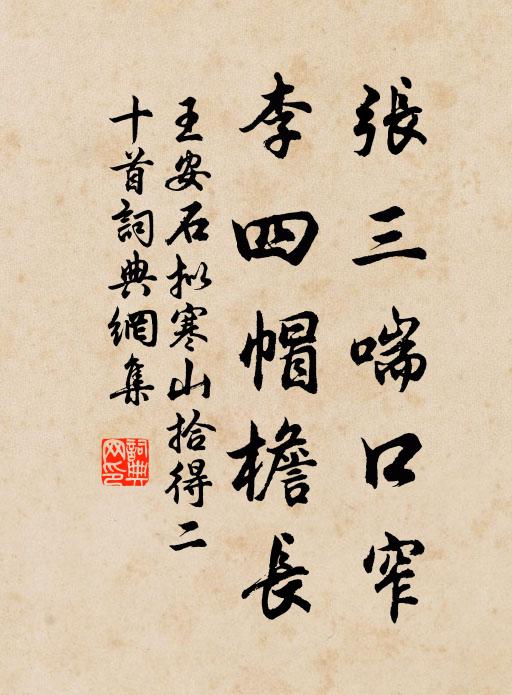 張三喘口窄
李四帽檐長
王安石拟寒山拾得二
十首詞典網集
詞典
网印